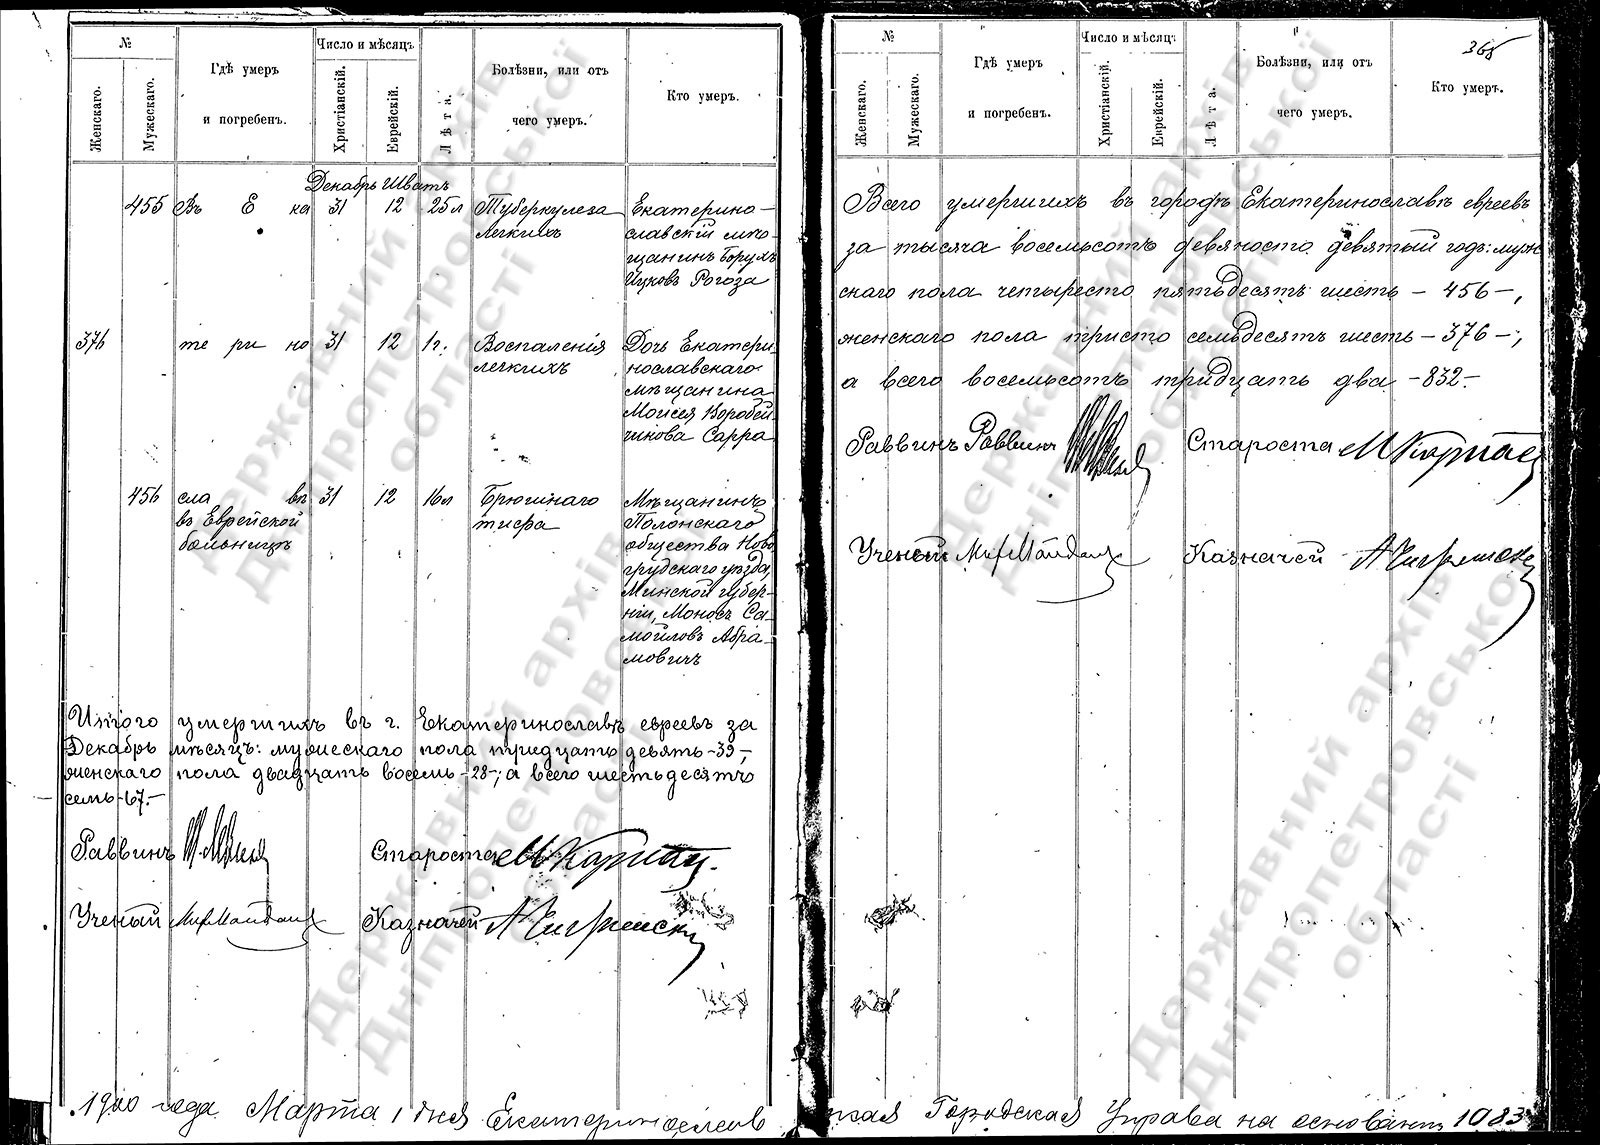 №
Женскаго.
Мужескаго.
Гдѣ умеръ
и погребенъ.
Число и мѣсяцъ
Христіанскій.
Еврейскій.
Лѣта.
Болѣзни, или отъ
чего умеръ.
Кто умеръ.
Декабрь Шватъ
455 Въ Е ка 31 12 25 л Туберкулеза Екатерино-
легкихъ славскій мѣ-
щанинъ Борухъ
Ицковъ Рогоза
376 те ри но 31 12 1 г. Воспаленія Дочь Екатери-
легкихъ нославскаго
мѣщанина
Моисея Воробей
чикова Сарра
456 сла вѣ 31 12 16 л Брюшнаго Мѣщанинъ
въ Еврейской тифа Полонскаго
больницѣ общества Ново
грудскаго уѣзда,
Минской губер-
ніи, Моносъ Са-
мойловъ Абра-
мовичъ
Итого умершихъ въ г. Екатеринославѣ евреевъ за
Декабрь мѣсяцъ: мужескаго пола тридцать девять -39-,
женскаго пола двадцать восемь -28-; а всего шестьдесятъ
семь -67.-
Раввинъ Староста М Карпас
Ученый Казначей
№
Женскаго.
Мужескаго.
Гдѣ умеръ
и погребенъ.
Число и мѣсяцъ
Христіанскій.
Еврейскій.
Лѣта.
Болѣзни, или отъ
чего умеръ.
368
Кто умеръ.
Всего умершихъ въ городѣ Екатеринославѣ евреевъ
за тысяча восемьсотъ девяносто девятый годъ: муже
скаго пола четыресто пятьдесятъ шесть - 456 -,
женскаго пола тристо семьдесятъ шесть - 376 -;
а всего восемьсотъ тридцать два - 832.-
Раввинъ Раввинъ Староста М Карпас
Ученый Казначей
1900 года Марта 1 дня Екатеринославская Городская Управа на основаніи 1083
Державний архів
Дніпропетровської
області